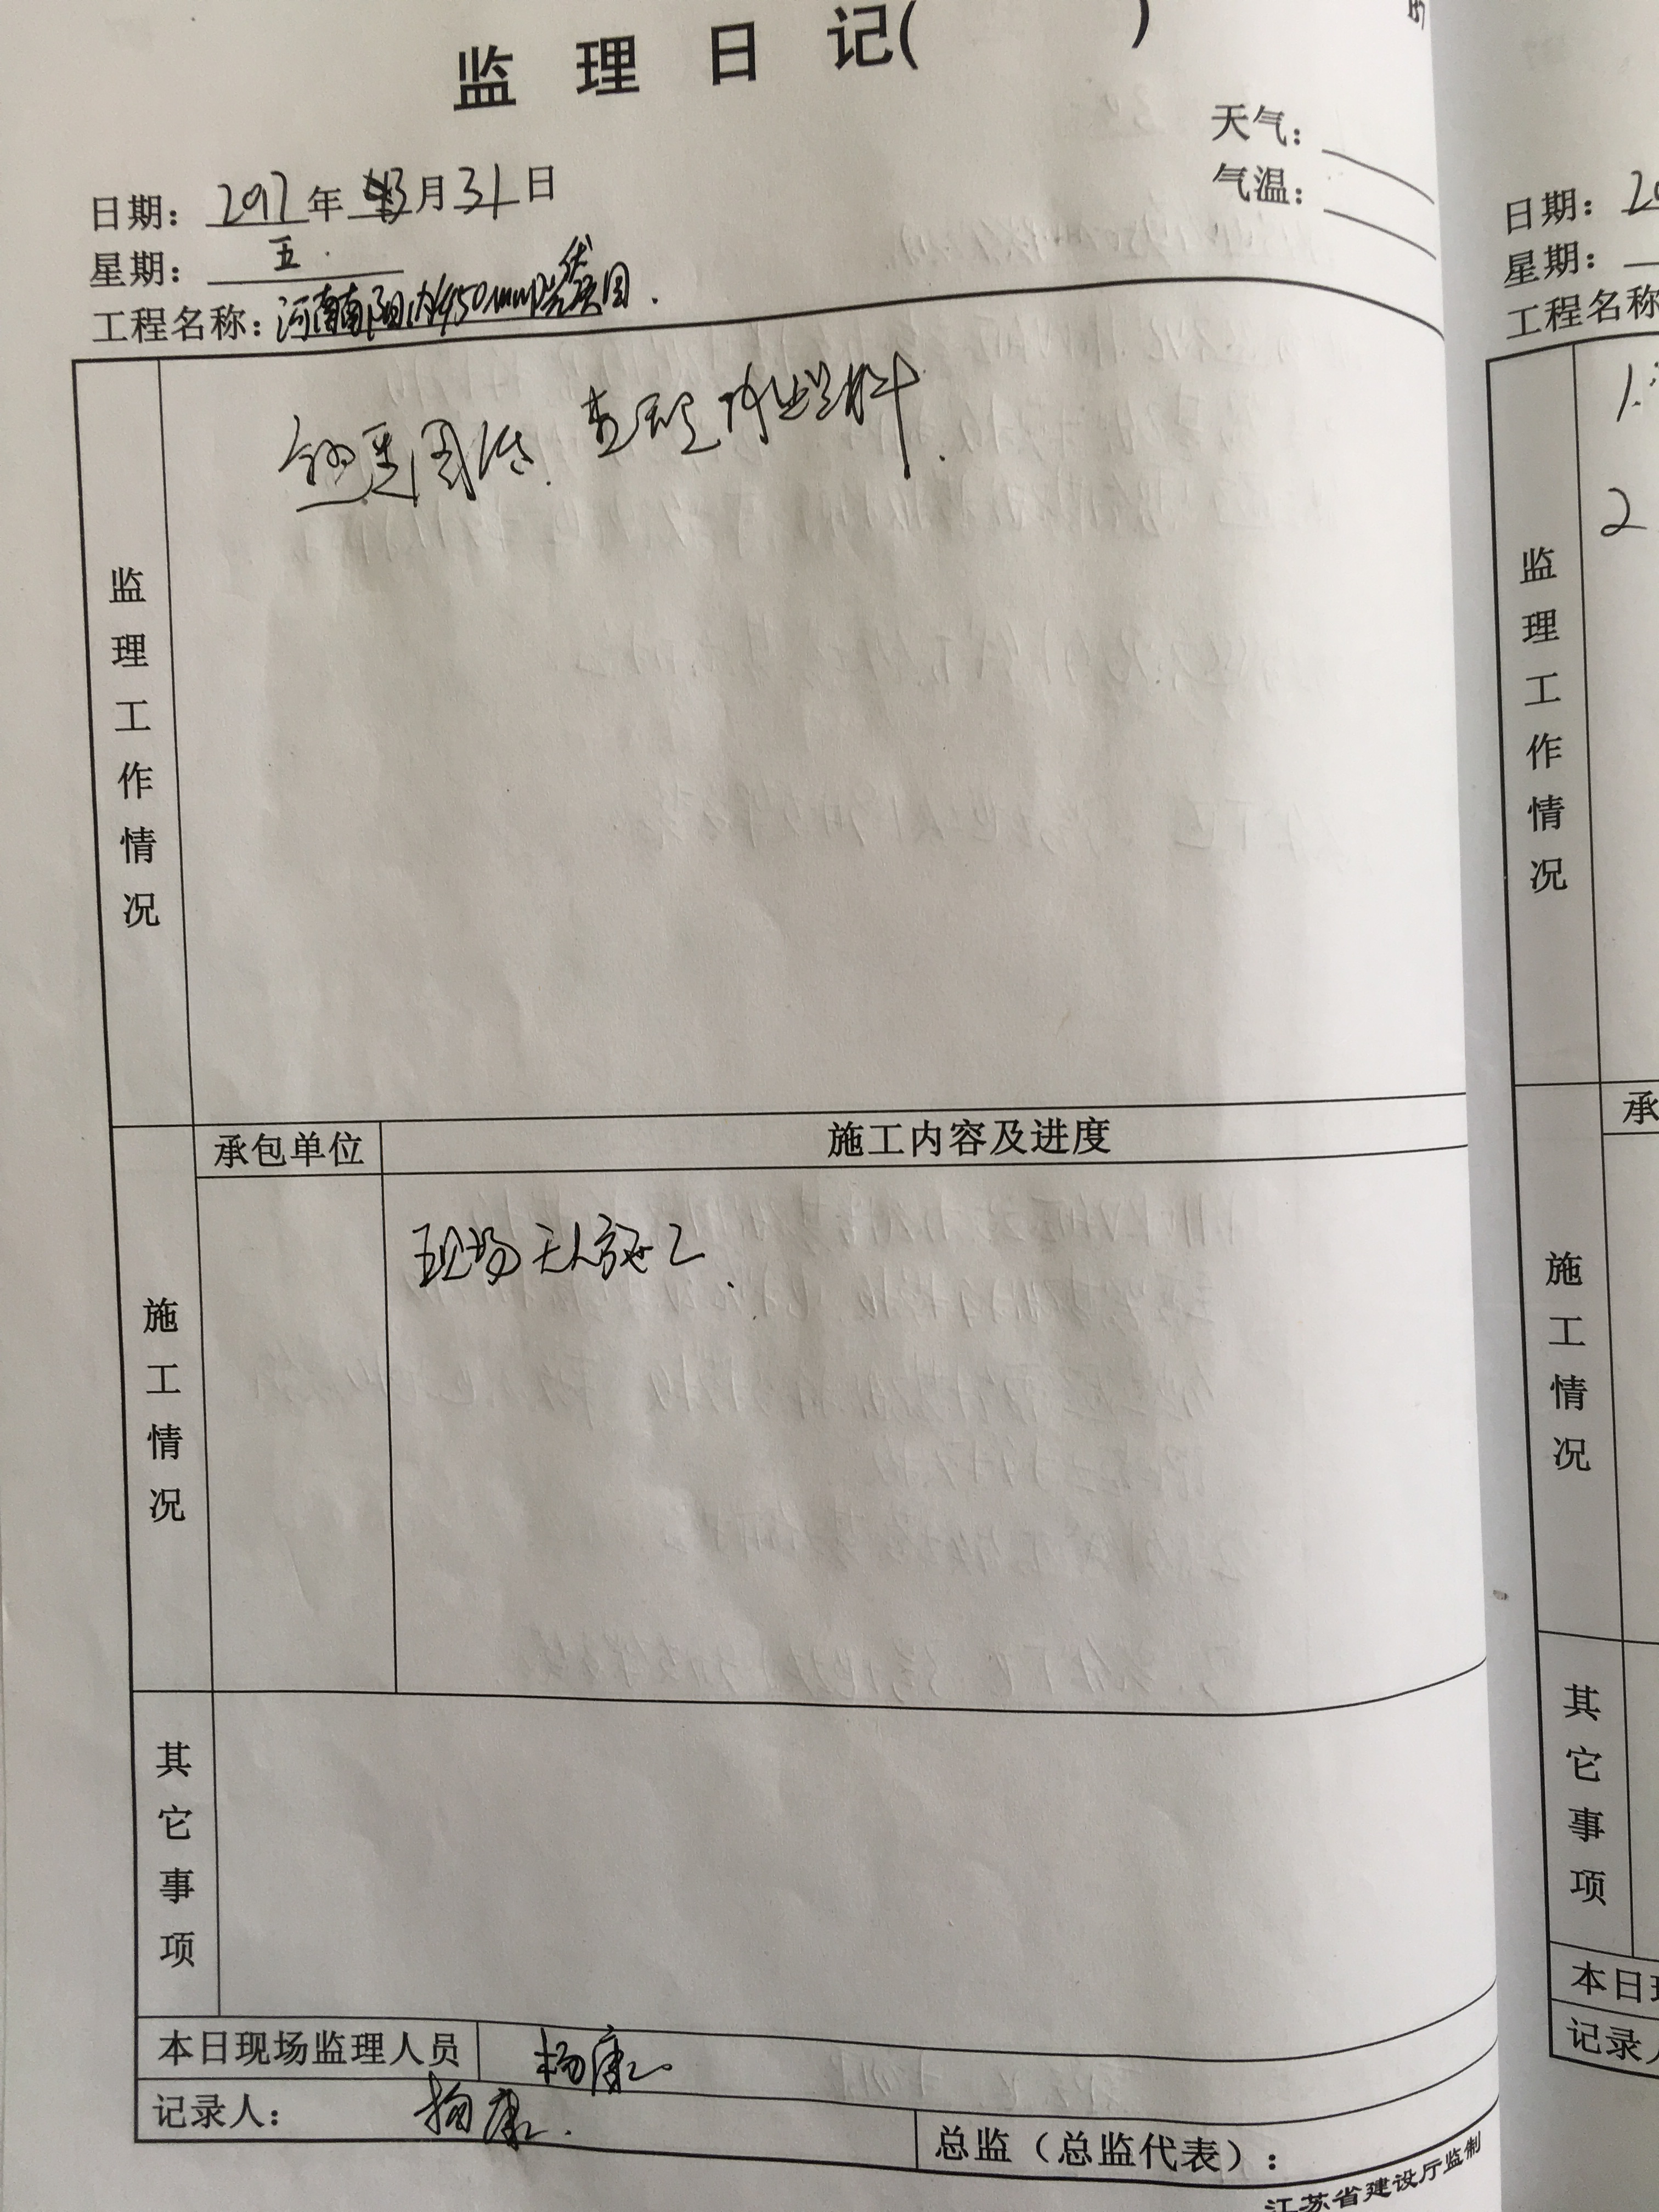 监理日记( )
天气:
气温:
日期: 2017年 3月31日
星期: 五.
工程名称: 河南南阳内乡50mmp光伏项目.
监理工作情况
查理内业资料.
承包单位 施工内容及进度
施工情况
现场无人施工.
其它事项
本日现场监理人员 杨康
记录人: 杨康.
总监(总监代表):
江苏省建设厅监制
日期: 20
星期:
工程名称
1.
2
监理工作情况
承
施工情况
其它事项
本日现
记录人